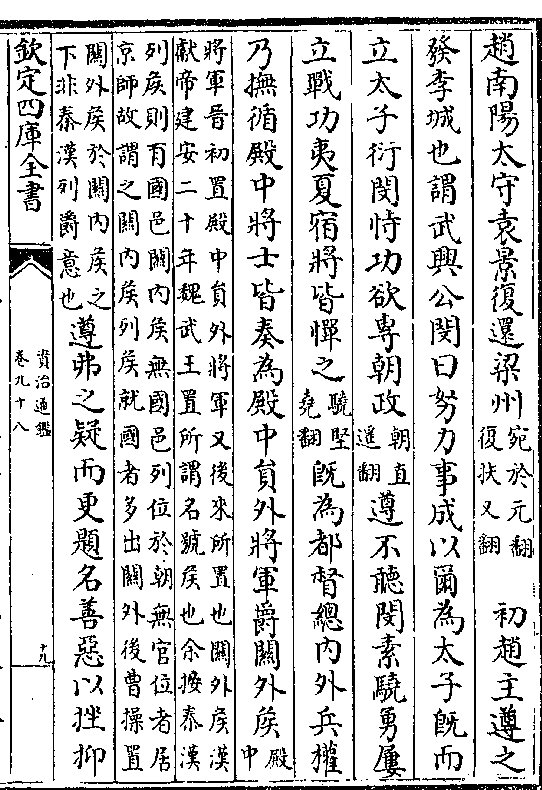 趙南陽太守袁景復還梁州宛於元翻復扶又翻 初趙主遵之
發李城也謂武興公閔曰努力事成以爾為太子既而
立太子衍閔恃功欲專朝政朝直遥翻遵不聽閔素驍勇屢
立戰功夷夏宿將皆憚之驍堅堯翻既為都督總内外兵權
乃撫循殿中將士皆奏為殿中員外將軍爵關外矦殿中
將軍晉初置殿中員外將軍又後來所置也關外矦漢
獻帝建安二十年魏武王置所謂名號矦也余按秦漢
列矦則有國邑關内矦無國邑列位於朝無官位者居
京師故謂之關内矦列矦就國者多出關外後曹操置
關外矦於關内矦之
下非秦漢列爵意也遵弗之疑而更題名善惡以挫抑
欽定四庫全書
資治通鑑
卷九十八
十九